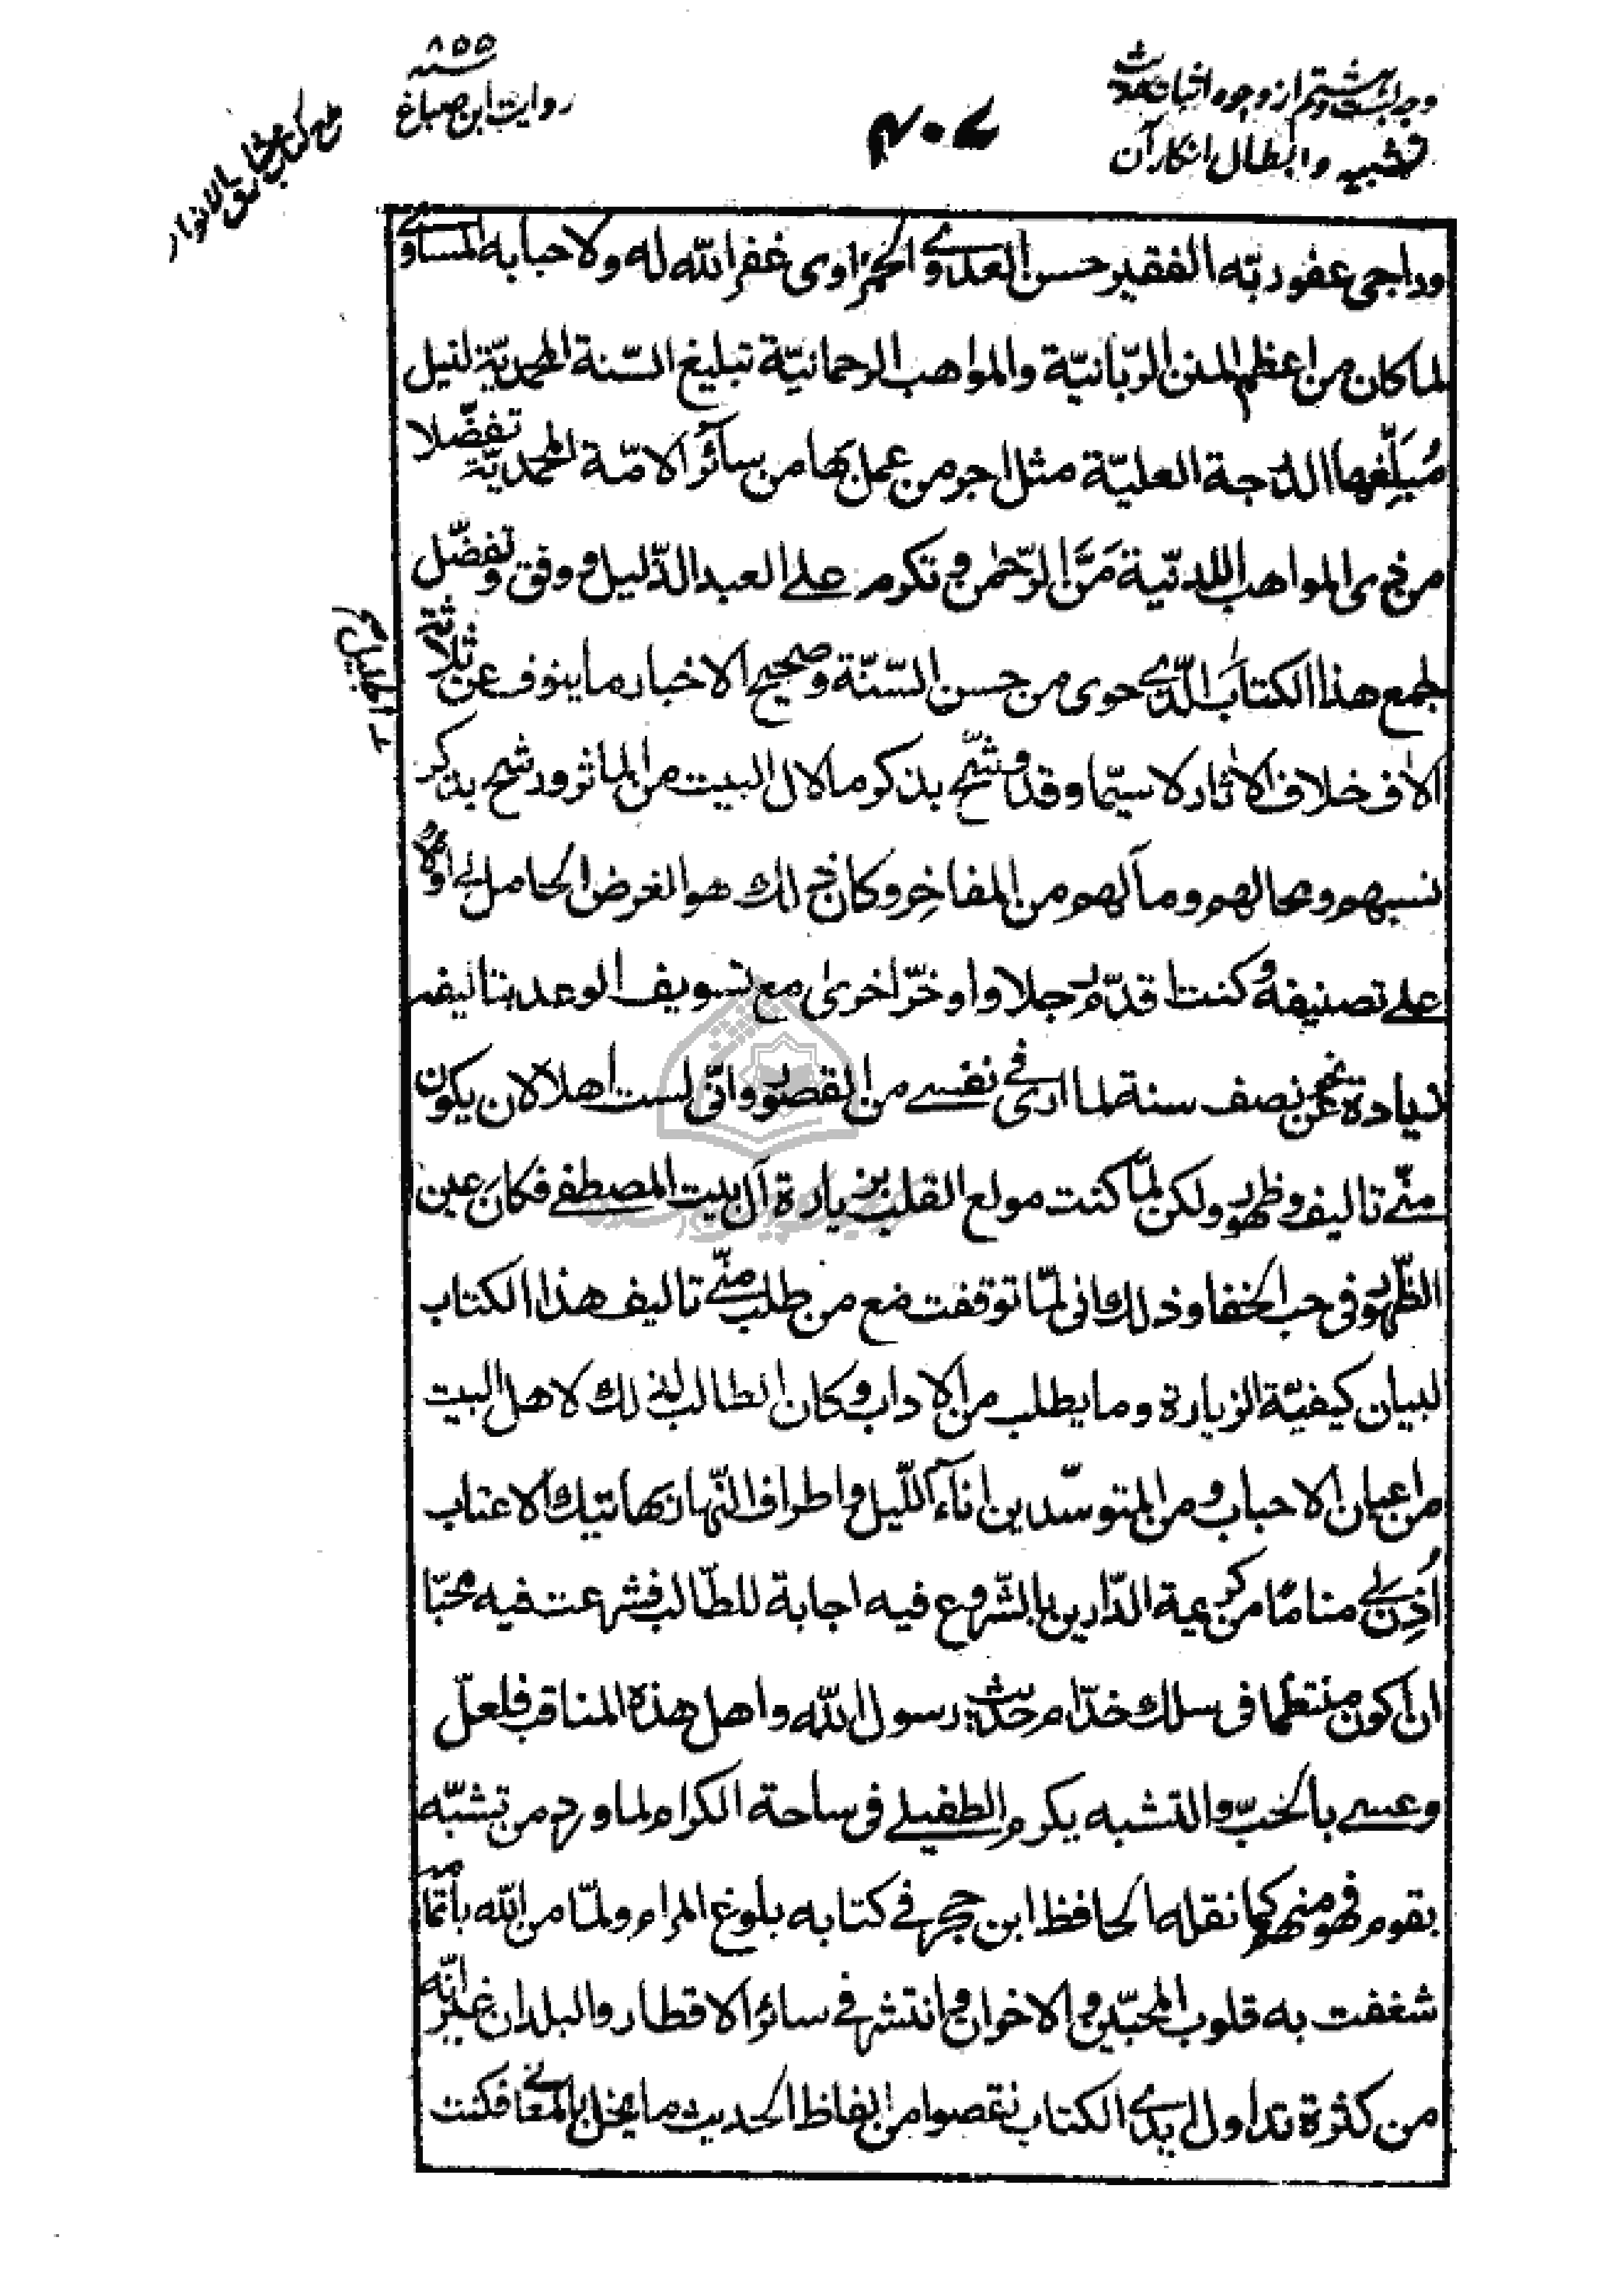 وجه بست وهشتم از وجوه اثبات حديث
تشبيه و ابطال انكار آن
۴۰۷
۸۵۵
روايت ابن صباغ
مدح كتاب مشارق الانوار
وراجى عفو ربّه الفقير حسن العدوى الحمزاوى غفر الله له ولاحبابه المساوى
لما كان من اعظم المنن الربّانيّة والمواهب الرحمانيّة تبليغ السّنة المحمديّة لنيل
مُبَلِّغها الدّرجة العليّة مثل اجر من عمل بها من سآئر الامّة المحمديّة تفضّلا
من ذى المواهب اللدنّية مَنَّ الرّحمن وتكرم على العبد الذّليل ووفق وتفضّل
لجمع هذا الكتاب الّذى حوى من حسن السّنّة وصحيح الاخبار ما ينوف عن ثلاثة
الاف خلاف الاثار لا سيّما وقد وشّح بذكر ما لال البيت من الماثر ورشح بذكر
نسبهم ومحالهم ومآلهم من المفاخِر وكان ذلك هو الغرض الحامل لى اوّلا
على تصنيفه وكنت اقدّم رجلا واوخّر اخرى مع تسويف الوعد بتاليفه
زيادة عن نحو نصف سنة لما ارى فى نفسى من القصور وانّى لست اهلا لان يكون
منّى تاليف وظهور ولكن لمّا كنت مولع القلب بزيارة آل بيت المصطفى فكان عين
الظّهور فى حب الخفا وذلك انى لمّا توقفت مع من طلب منّى تاليف هذا الكتاب
لبيان كيفيّة الزيارة وما يطلب من الاداب وكان الطالب لذلك لاهل البيت
من اعيان الاحباب ومن المتوسّدين اناء اللّيل واطراف النّهار بهاتيك الاعتاب
اُذِنَ لى منامًا من كريمة الدّارين بالشّروع فيه اجابة للطّالب فشرعت فيه محبّا
ان اكون منتظما فى سلك خدّام حديث رسول الله واهل هذه المناقب فلعلّ
وعسى بالحبّ والتشبه يكرم الطفيلى فى ساحة الكرام لما ورد من تشبّه
بقوم فهو منهم كما نقله الحافظ ابن حجر فى كتابه بلوغ المرام ولمّا من الله باتمامه
شغفت به قلوب المحبّين والاخوان وانتشر فى سائر الاقطار والبلدان غير انّه
من كثرة تداول ايدى الكتاب نقصوا من الفاظ الحديث ما يخل بالمعانى فكنت